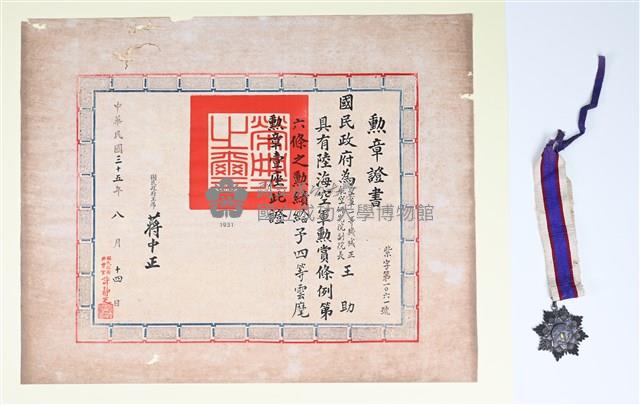 勳章證書
紫字第一〇六一號
國民政府為空軍一等機械正
航空研究院副院長
王助
具有陸海空軍勳賞條例第
六條之勳績給予四等雲麾
勳章壹座此證
榮典之璽
國民政府主席
蔣中正
中華民國三十五年八月十四日
國立成功大學博物館
1931